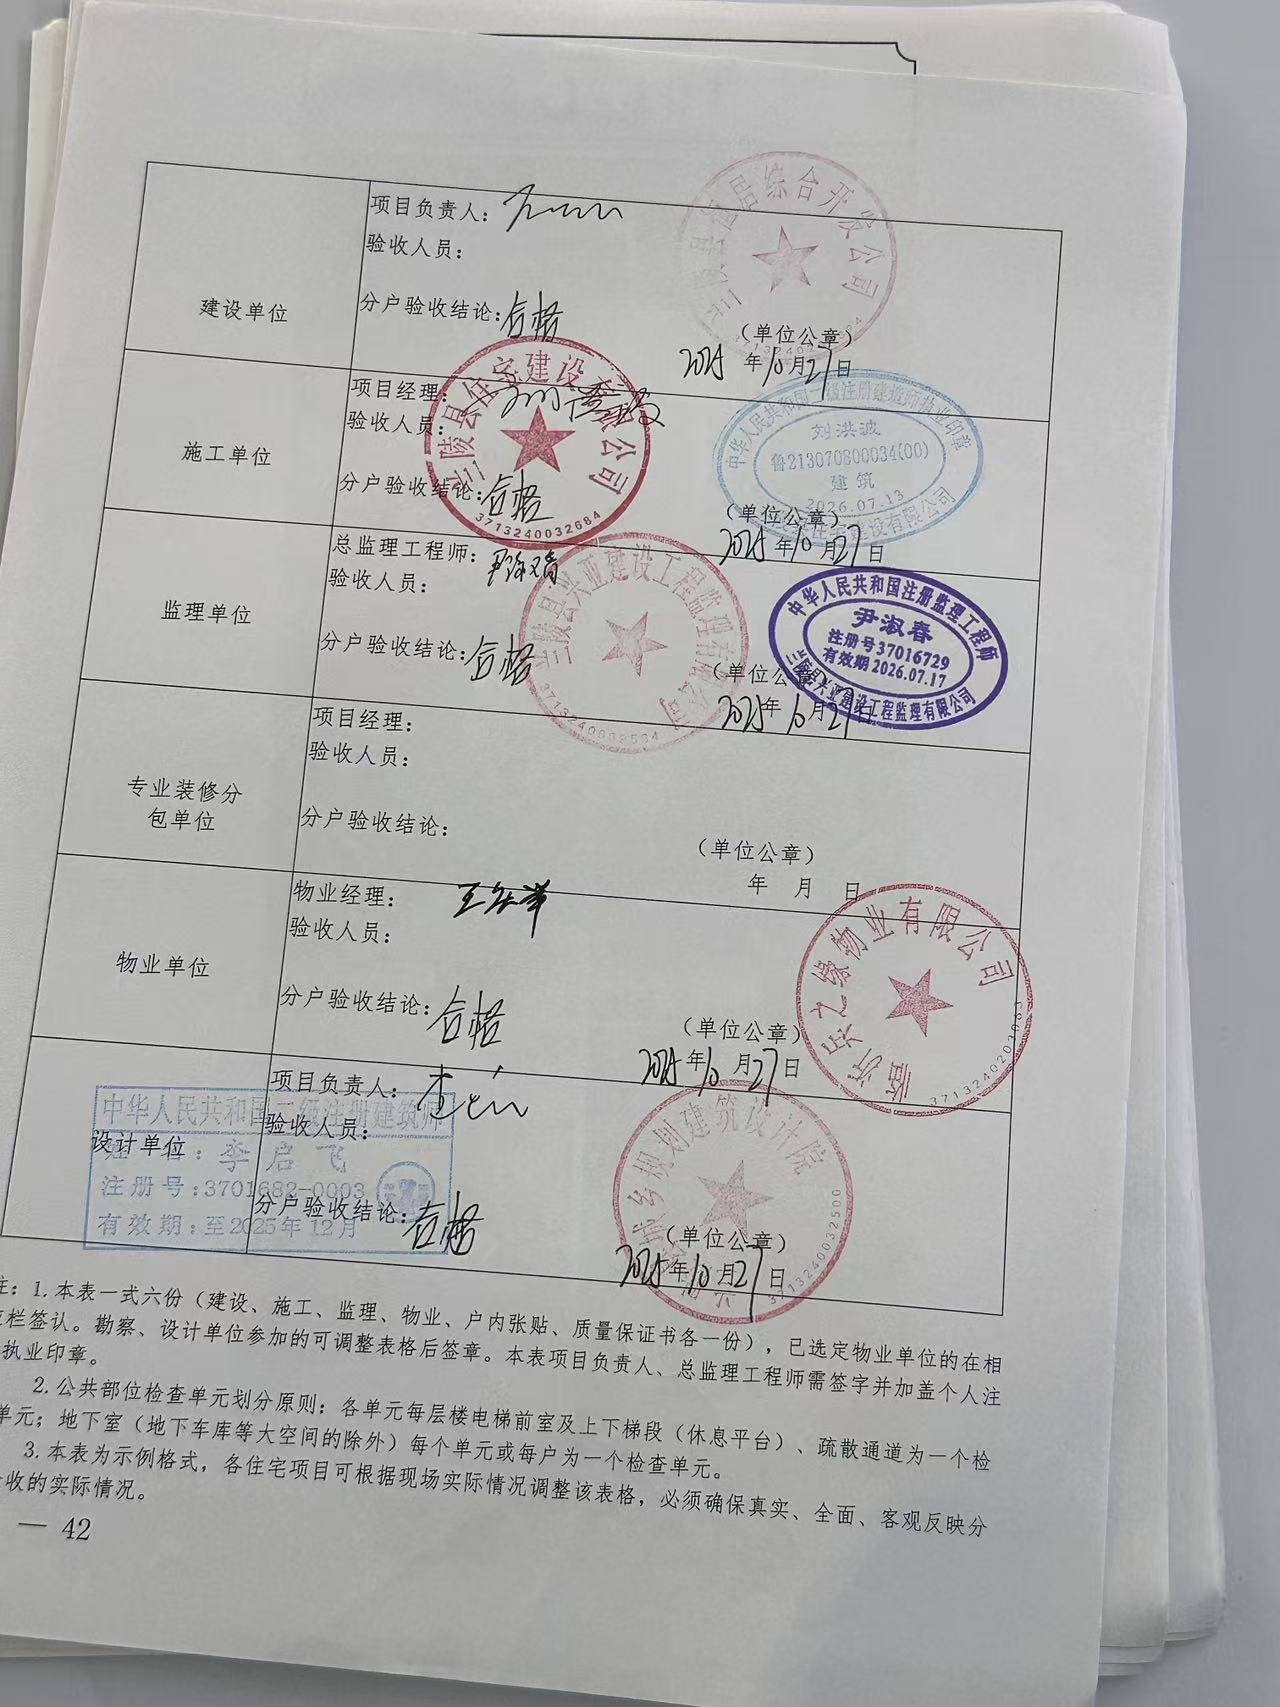 建设单位
项目负责人：
验收人员：
分户验收结论：合格
（单位公章）
2025年10月27日
综合开发公司
施工单位
项目经理：
验收人员：
分户验收结论：合格
（单位公章）
2025年10月27日
兰陵县住宅建设有限公司
3713240032684
中华人民共和国二级注册建造师执业印章
刘洪波
鲁213070800034(00)
建筑
2026.07.13
监理单位
总监理工程师：尹淑春
验收人员：
分户验收结论：合格
（单位公章）
2025年10月27日
兰陵县兴亚建设工程监理有限公司
中华人民共和国注册监理工程师
尹淑春
注册号37016729
有效期2026.07.17
兰陵县兴亚建设工程监理有限公司
专业装修分
包单位
项目经理：
验收人员：
分户验收结论：
（单位公章）
年 月 日
物业单位
物业经理：
验收人员：
分户验收结论：合格
（单位公章）
2025年10月27日
临沂昊之缘物业有限公司
设计单位
项目负责人：
验收人员：
分户验收结论：合格
（单位公章）
2025年10月27日
城乡规划建筑设计院
3713240032500
中华人民共和国二级注册建筑师
姓 名：李启飞
注册号：3701682-0003
有效期：至2025年12月
注：1.本表一式六份（建设、施工、监理、物业、户内张贴、质量保证书各一份），已选定物业单位的在相
应栏签认。勘察、设计单位参加的可调整表格后签章。本表项目负责人、总监理工程师需签字并加盖个人注
执业印章。
2.公共部位检查单元划分原则：各单元每层楼电梯前室及上下梯段（休息平台）、疏散通道为一个检
单元；地下室（地下车库等大空间的除外）每个单元或每户为一个检查单元。
3.本表为示例格式，各住宅项目可根据现场实际情况调整该表格，必须确保真实、全面、客观反映分
收的实际情况。
— 42